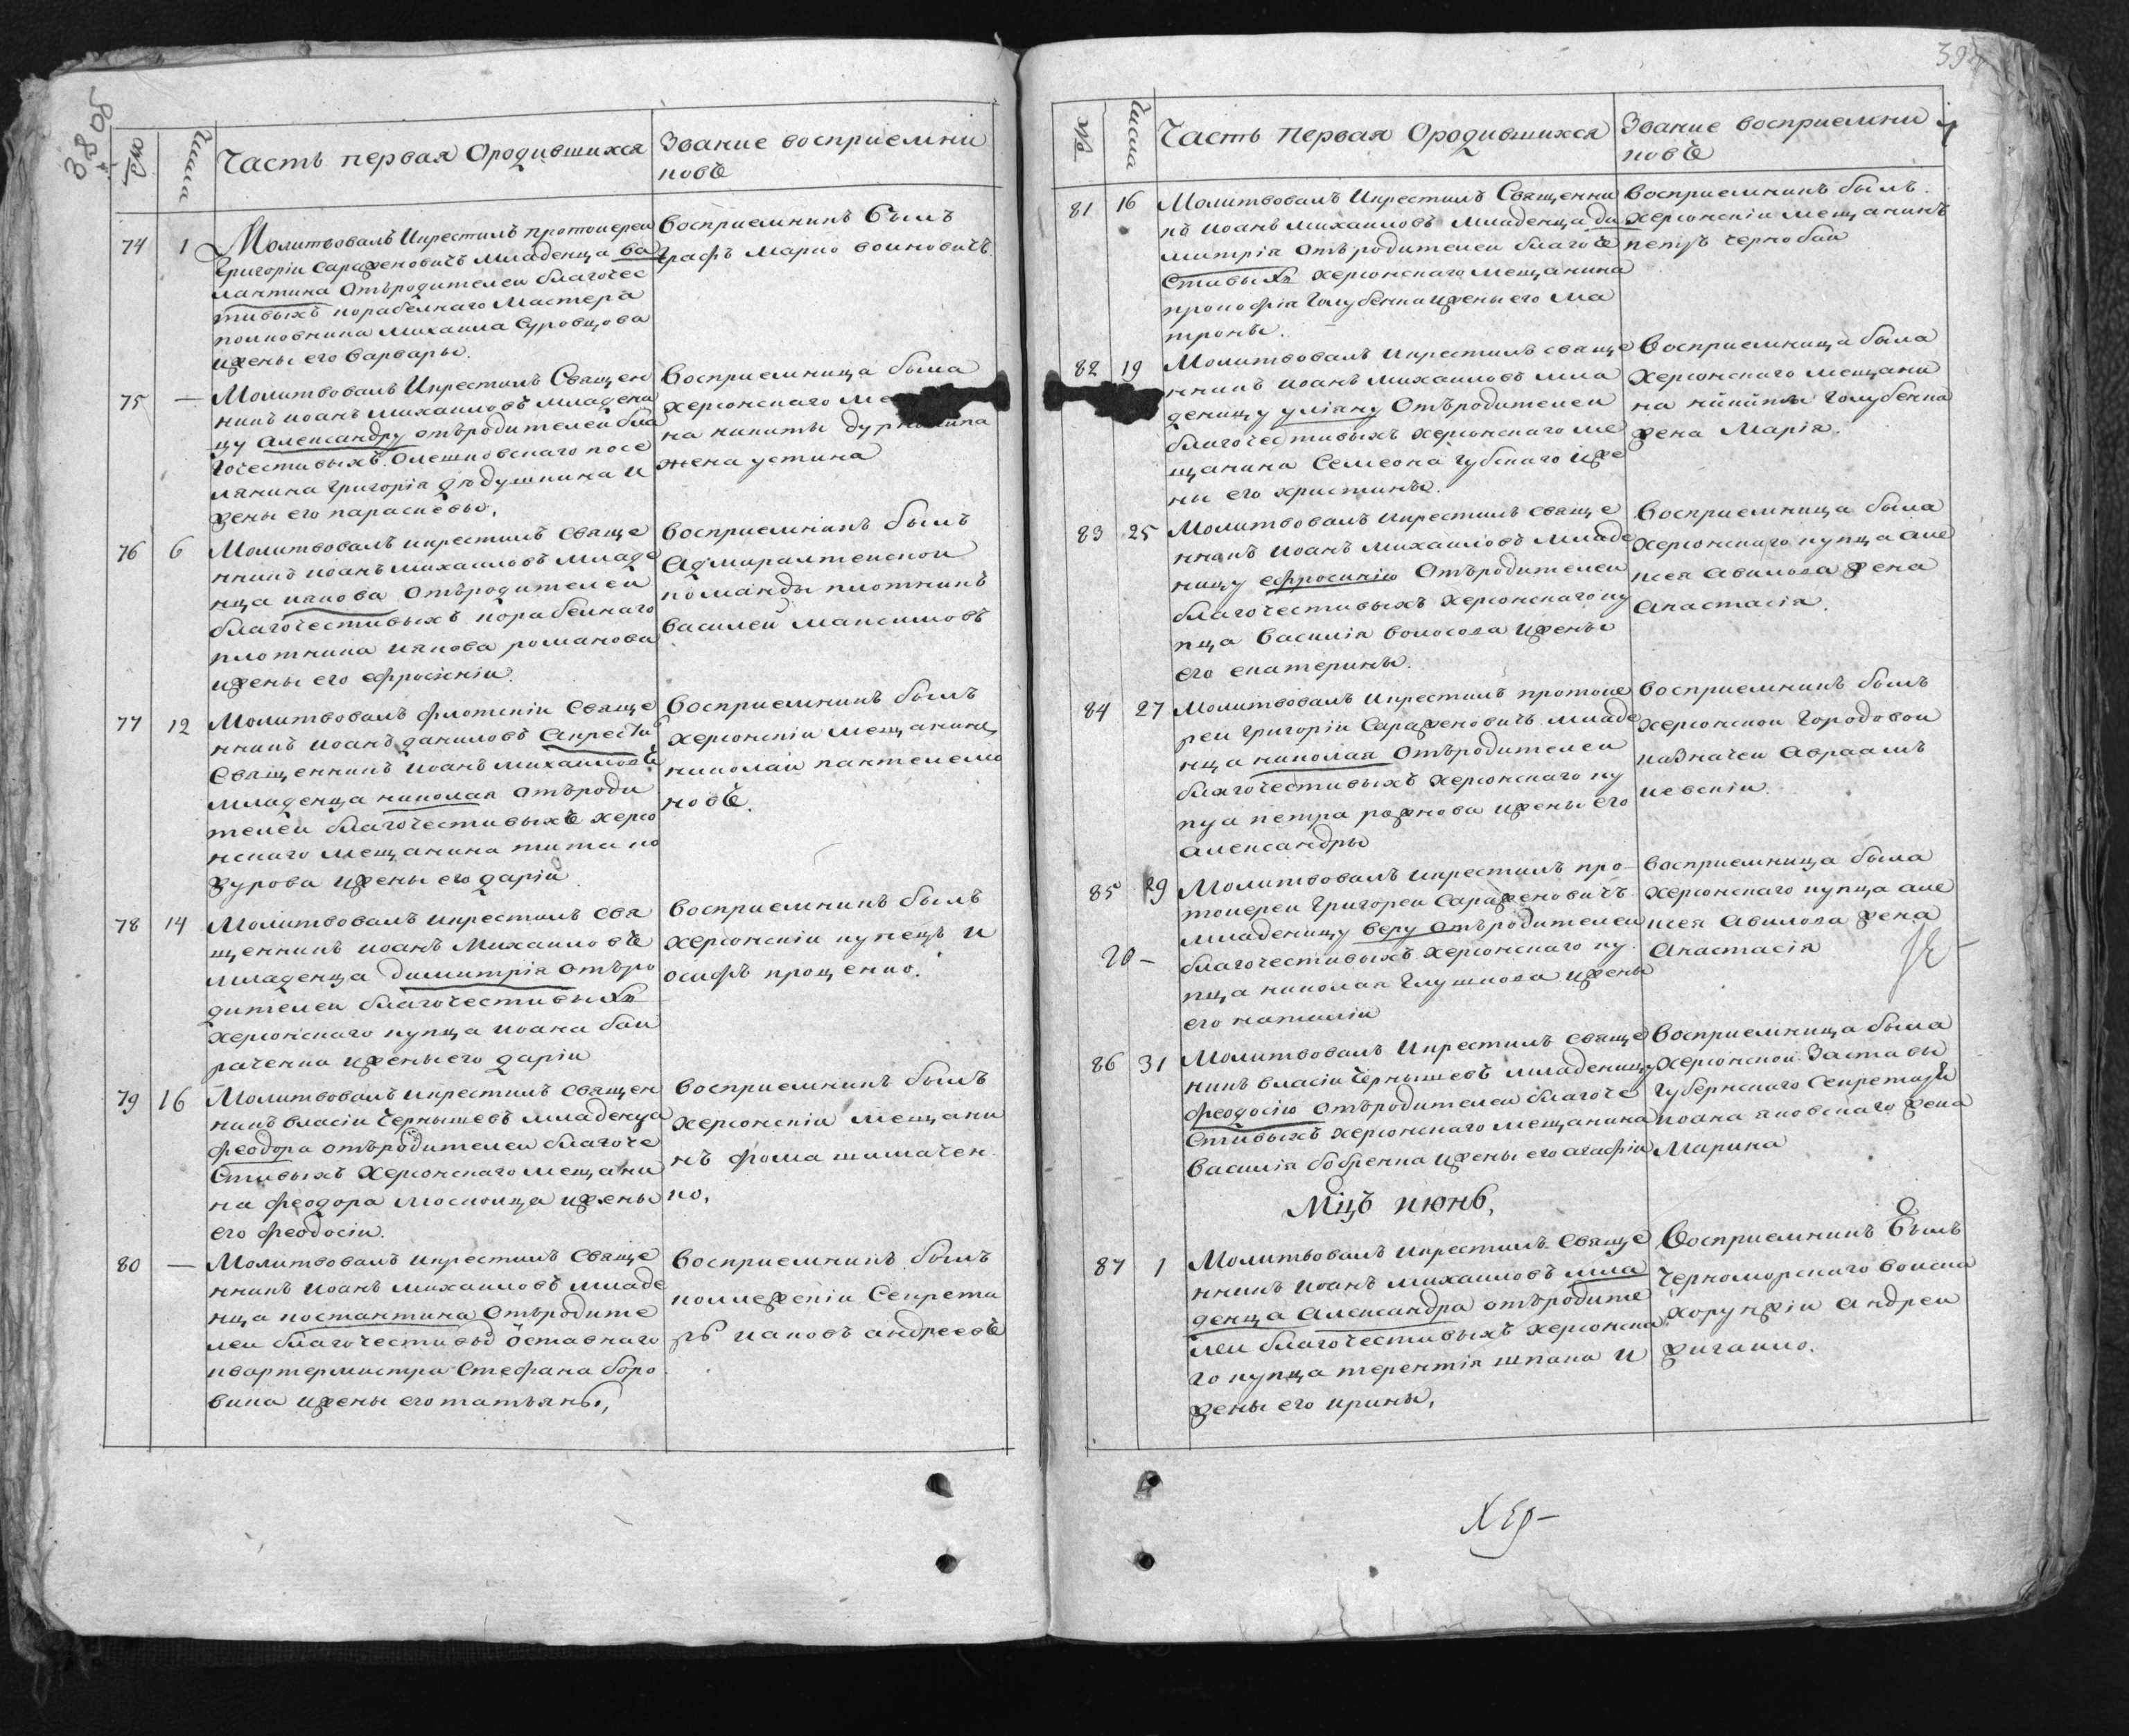 380 об
№
Числа
Часть первая Ородившихся
Звание восприемни
ковъ
74
1
Молитвовалъ Икрестилъ протоиереи
Григории Сараженовичъ младенца ва
лантина Отъродителеи благочес
тивыхъ корабелнаго Мастера
полковника Михаила Суровцова
ижены его Варвары.
Восприемникъ былъ
Графъ Марко воиновичъ
75
—
Молитвовалъ Икрестилъ Священ
никъ иоанъ михаиловъ младени
цу александру отъродителей бла
гочестивыхъ Олешковскаго посе
лянина григорія дядушкина и
жены его параскевы.
Восприемница была
херсонскаго ме
на никиты
жена устина
76
6
Молитвовалъ икрестилъ Свяще
нникъ иоанъ михаиловъ младе
нца иякова Отъродителеи
благочестивыхъ корабелнаго
плотника иякова романова
ижены его ефросініи.
Восприемникъ былъ
Адмиралтеискои
команды плотникъ
василеи максимовъ
77
12
Молитвовалъ флотскіи Свяще
нникъ иоанъ даниловъ Акрести
Священникъ иоанъ михаиловъ
младенца николая Отъроди
телеи благочестивыхъ херсо
нскаго мещанина тита ко
журова ижены его даріи
Восприемникъ былъ
херсонскіи мещанинъ
николаи пантелемо
новъ.
78
14
Молитвовалъ икрестилъ Свя
щенникъ иоанъ Михаиловъ
младенца димитрія Отъро
дителеи благочестивыхъ
херсонскаго купца иоана баи
раченка ижены его даріи
Восприемникъ былъ
херсонскіи купецъ и
осифъ проценко.
79
16
Молитвовалъ икрестилъ Священ
никъ власіи Чернышевъ младенца
феодора отъродителеи благоче
стивыхъ Херсонскаго мещани
на феодора москолца ижены
его феодосіи.
Восприемникъ былъ
херсонскіи мещани
нъ фома шимачен
ко.
80
—
Молитвовалъ икрестилъ Свяще
нникъ иоанъ михаиловъ младе
нца костантина Отъродите
леи благочестивы Оставнаго
квартермистра Стефана боро
вика ижены его татьяны.
Восприемникъ былъ
коллежскіи Секрета
рь иаковъ андреевъ
№
Числа
Часть первая Ородившихся
Звание восприемни
ковъ
81
16
Молитвовалъ Икрестилъ Священни
къ иоанъ михаиловъ младенца ди
митрія Отъ родителеи благоче
стивыхъ херсонскаго мещанина
прокофія Голубенка ижены его ма
троны.
Восприемникъ былъ
Херсонскіи мещанинъ
петръ чернобаи
82
19
Молитвовалъ икрестилъ свяще
нникъ иоанъ михаиловъ мла
деницу уліяну Отъродителеи
благочестивыхъ херсонскаго ме
щанина Семеона Губскаго иже
ны его христины.
Восприемница была
Херсонскаго мещани
на никиты Голубенка
жена Марія.
83
25
Молитвовалъ икрестилъ свяще
нникъ иоанъ михаиловъ младе
ницу ефросинію Отъродителеи
благочестивыхъ херсонскаго ку
пца Василія волосова ижены
его екатерины.
Восприемница была
Херсонскаго купца але
ксея Авилова жена
Анастасія.
84
27
Молитвовалъ икрестилъ протоие
реи григоріи Сараженовичъ младе
нца николая Отъродителеи
благочестивыхъ херсонскаго ку
пца петра рожнова ижены его
александры
Восприемникъ былъ
херсонскои Городовои
казначеи Авраамъ
иевскіи.
85
29
20 —
Молитвовалъ икрестилъ про-
тоиереи Григореи Сараженовичъ
младеницу Веру отъродителеи
благочестивыхъ херсонскаго ку
пца николая Глушкова ижены
его наталіи
Восприемница была
Херсонскаго купца але
ксея Авилова жена
Анастасія
86
31
Молитвовалъ Икрестилъ свяще
никъ власіи чернышевъ младеницу
феодосію Отъродителеи благоче
стивыхъ херсонскаго мещанина
Василія бобренка ижены его агафіи
Восприемница была
Херсонскои Заставы
Губернскаго Секретаря
иоана яновскаго жена
Марина
Мцъ июнь,
87
1
Молитвовалъ икрестилъ Свяще
нникъ иоанъ михаиловъ мла
денца Александра отъродите
леи благочестивыхъ херсонска
го купца терентія шпака и
жены его ирины,
Восприемникъ былъ
Черноморскаго воиска
хорунжіи андреи
жигаило.
Хер—